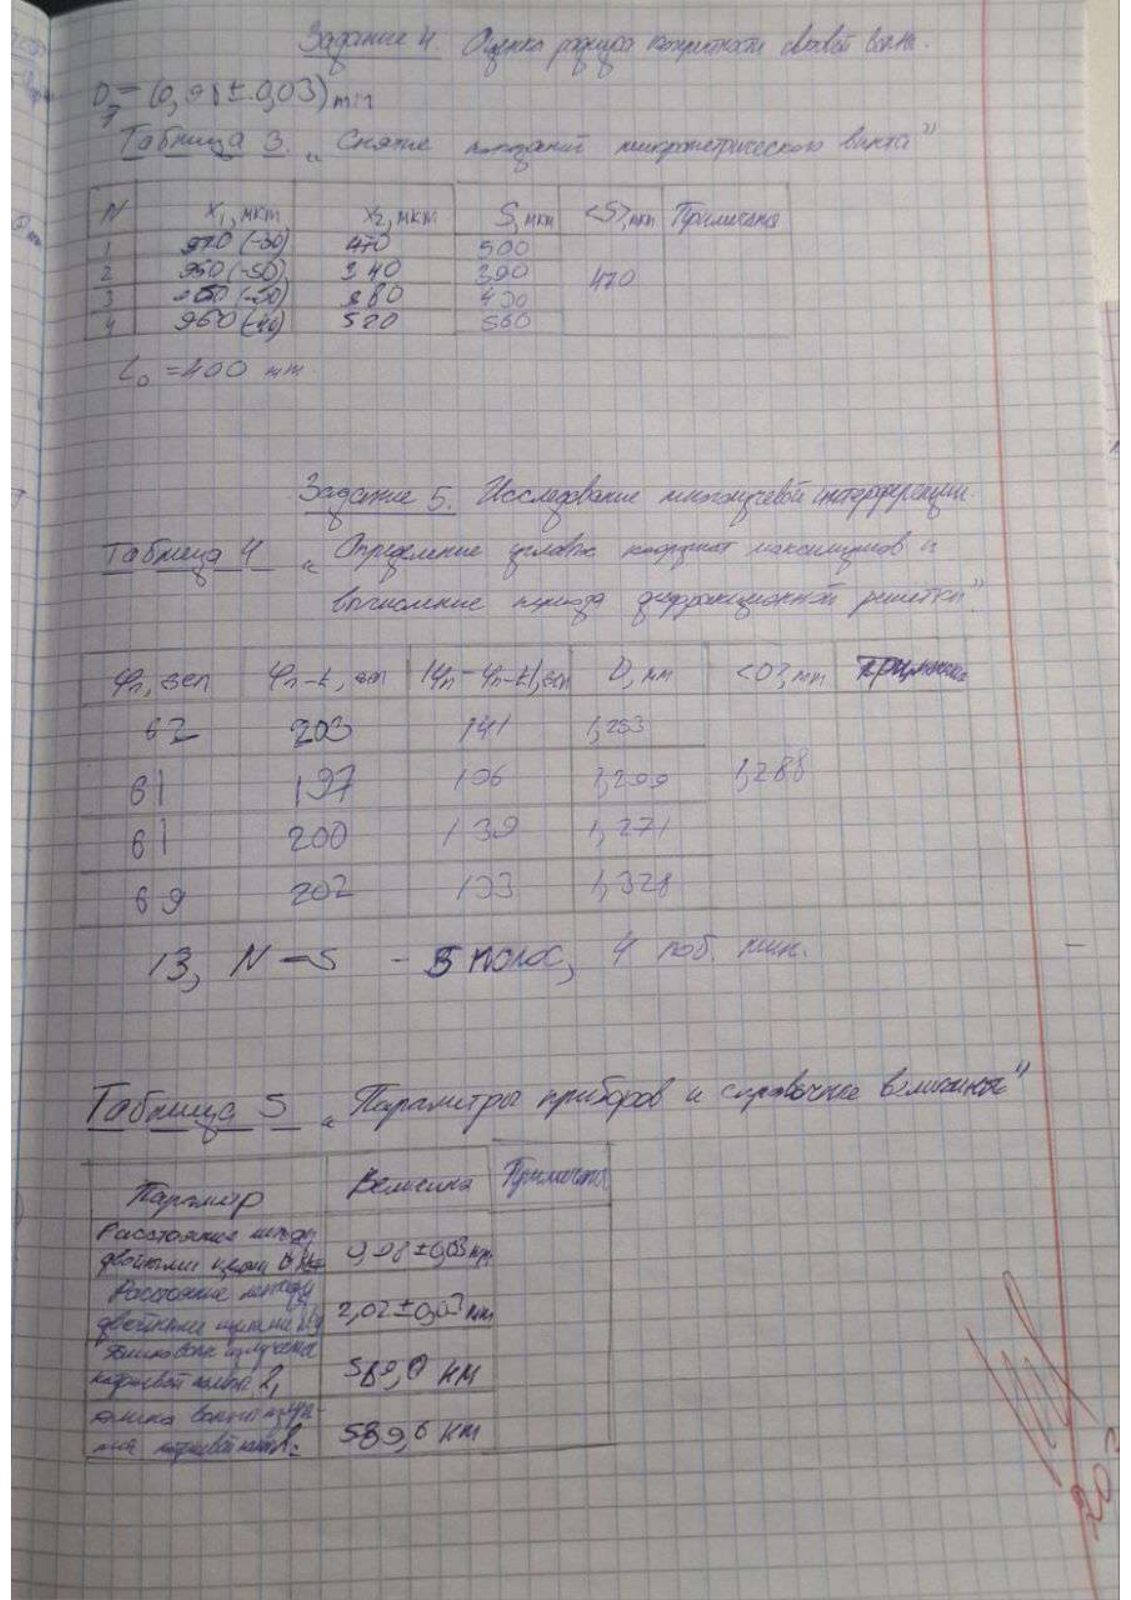 Задание 4. Оценка радиуса когерентности световой волны.
D₇ = (0,98 ± 0,03) mm
Таблица 3. „Снятие показаний микрометрического винта”
N x₁, мкм x₂, мкм S, мкм <S>, мкм Примечание
1 970 (-30) 470 500
2 950 (-50) 340 390 470
3 950 (-50) 380 430
4 960 (-40) 520 560
L₀ = 400 mm.
Задание 5. Исследование многолучевой интерференции.
Таблица 4 „Определение угловых координат максимумов и
вычисление периода дифракционной решётки”
φn, дел φn-k, дел |φn - φn-k|, дел D, мм <D>, mm Примечание
62 203 141 1,253
61 197 136 1,299 1,288
61 200 139 1,271
69 202 133 1,328
13, N - 5 - 5 полос, 4 поб. мин.
Таблица 5 „Параметры приборов и справочные величины”
Параметр Величина Примечание
Расстояние между
двойными щелями 0,98 ± 0,03 мм
Расстояние между
двойными щелями 2,02 ± 0,03 мм
длина волны излучения
натриевой лампы λ₁ 589,0 нм
длина волны излуче-
ния натриевой лампы 589,6 нм